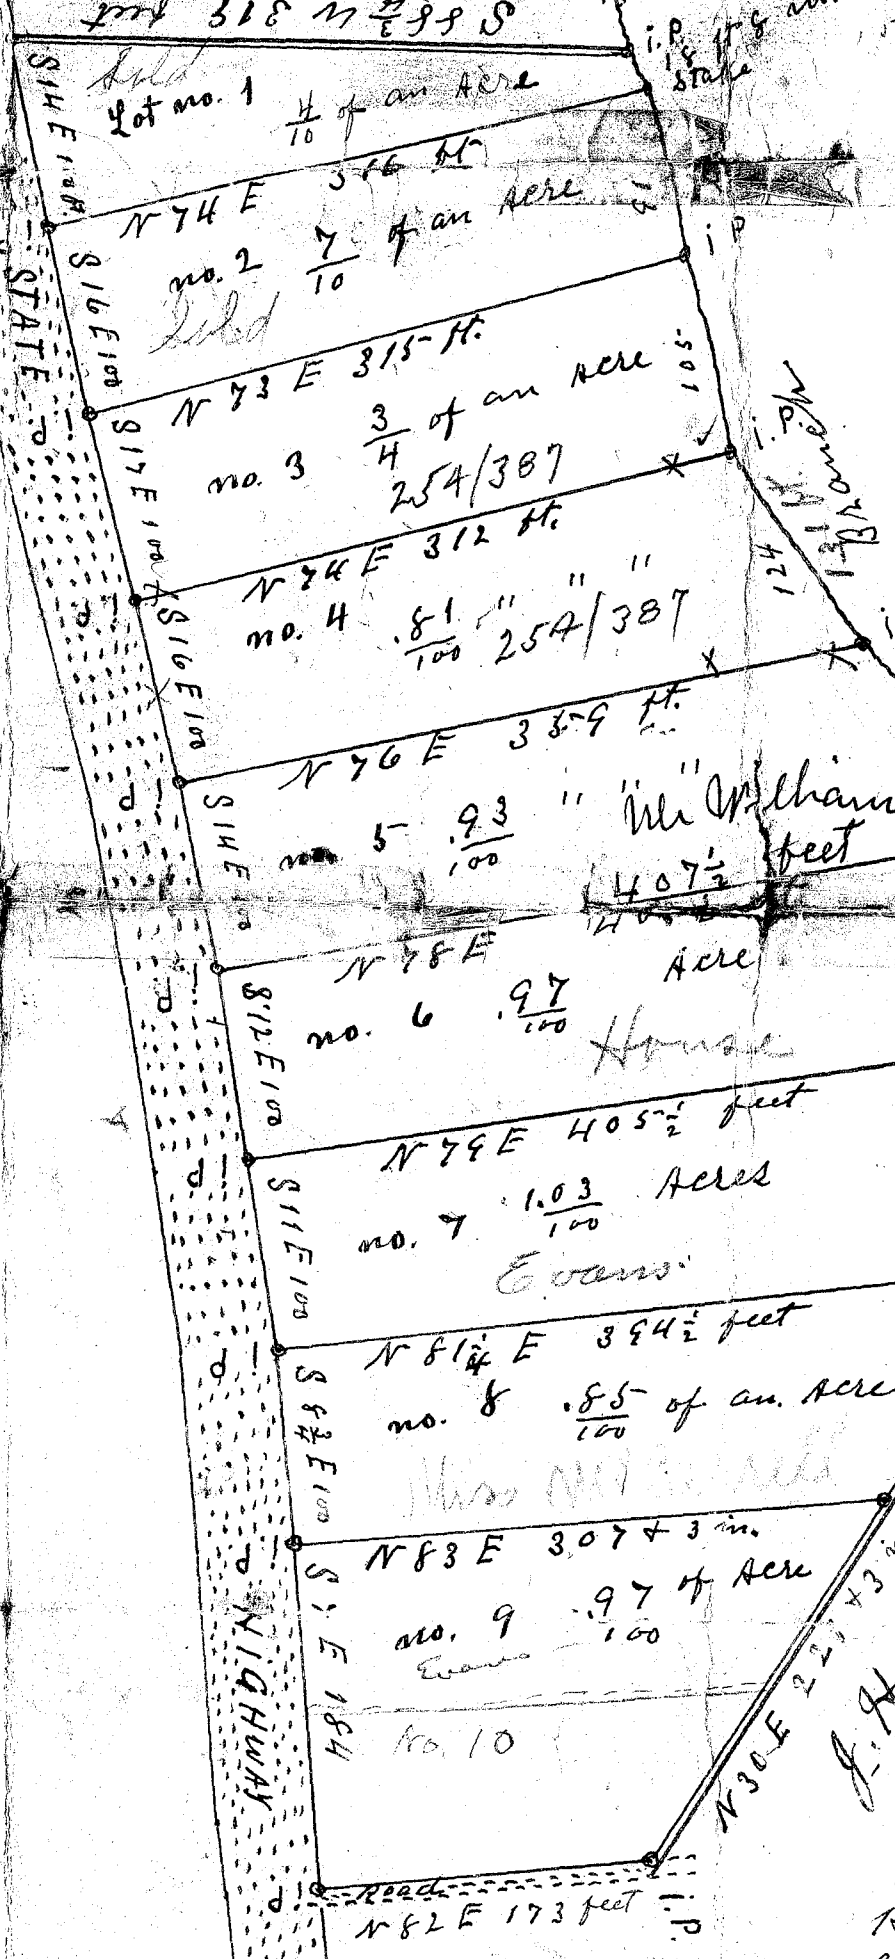 S 88 3/4 W 319 feet
i.P.
Stake
Sold
Lot no. 1 4/10 of an Acre
S 14 E 100 ft.
N 74 E 316 ft
no. 2 7/10 of an Acre
Sold
91
i P
S 16 E 100
STATE
N 73 E 315 ft.
no. 3 3/4 of an Acre
254/387
105
i.P.
Branch
S 17 E 100
N 74 E 312 ft.
no. 4 .81/100 " " "
254/387
124
131 ft.
i.P
S 16 E 100
N 76 E 359 ft.
no 5 .93/100 " " "
feet
407 1/2
i.P
S 14 E 100
N 78 E
no. 6 .97/100 Acre
House
i.P
S 12 E 100
N 79 E 405 1/2 feet
no. 7 1.03/100 Acres
Evans.
i P
S 11 E 100
N 81 1/4 E 394 1/2 feet
no. 8 .85/100 of an. Acre
Miss
i P
S 8 3/4 E 100
N 83 E 307 + 3 in.
no. 9 .97/100 of Acre
Evans
i P
HIGHWAY
S 7 E 184
No. 10
N 30 E
J. H
i P
Road
N 82 E 173 feet
i.P.